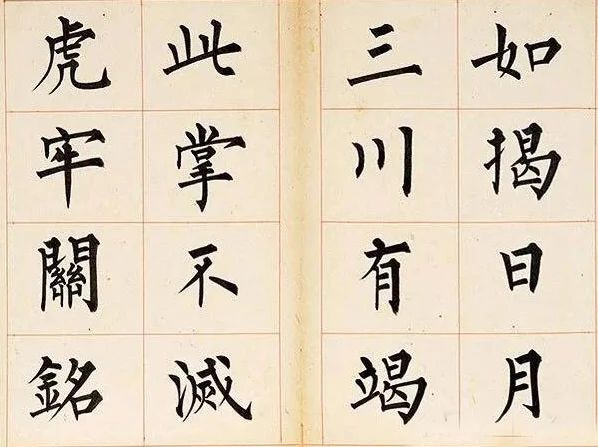 如揭日月
三川有竭
此掌不滅
虎牢關銘